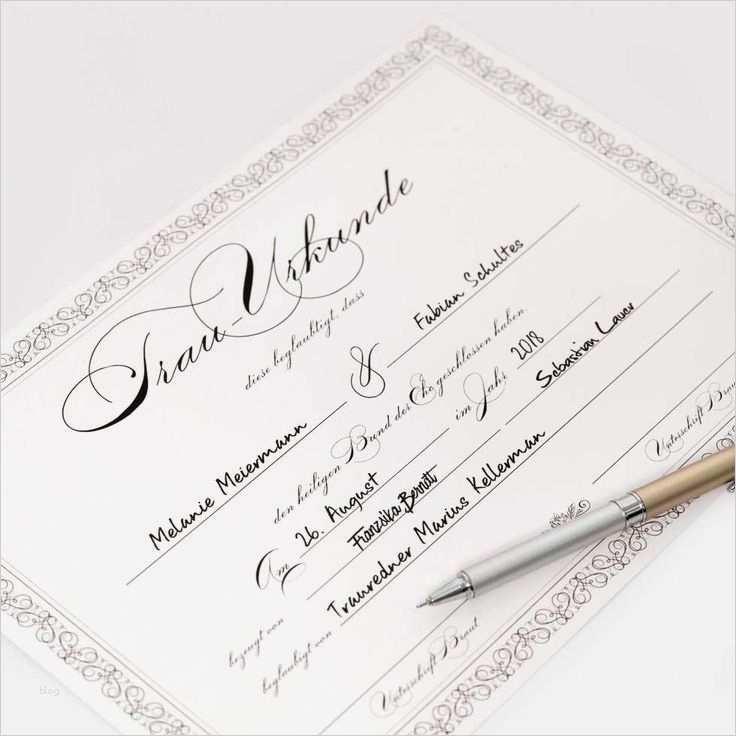 Trau-Urkunde
diese beglaubtigt, dass
Melanie Meiermann & Fabian Schultes
den heiligen Bund der Ehe geschlossen haben.
Am 26. August im Jahr 2018
bezeugt von Franzsika Bernatt & Sebastian Lauer
beglaubigt von Trauredner Marius Kellerman
Unterschrift Braut Unterschrift Braut
blog